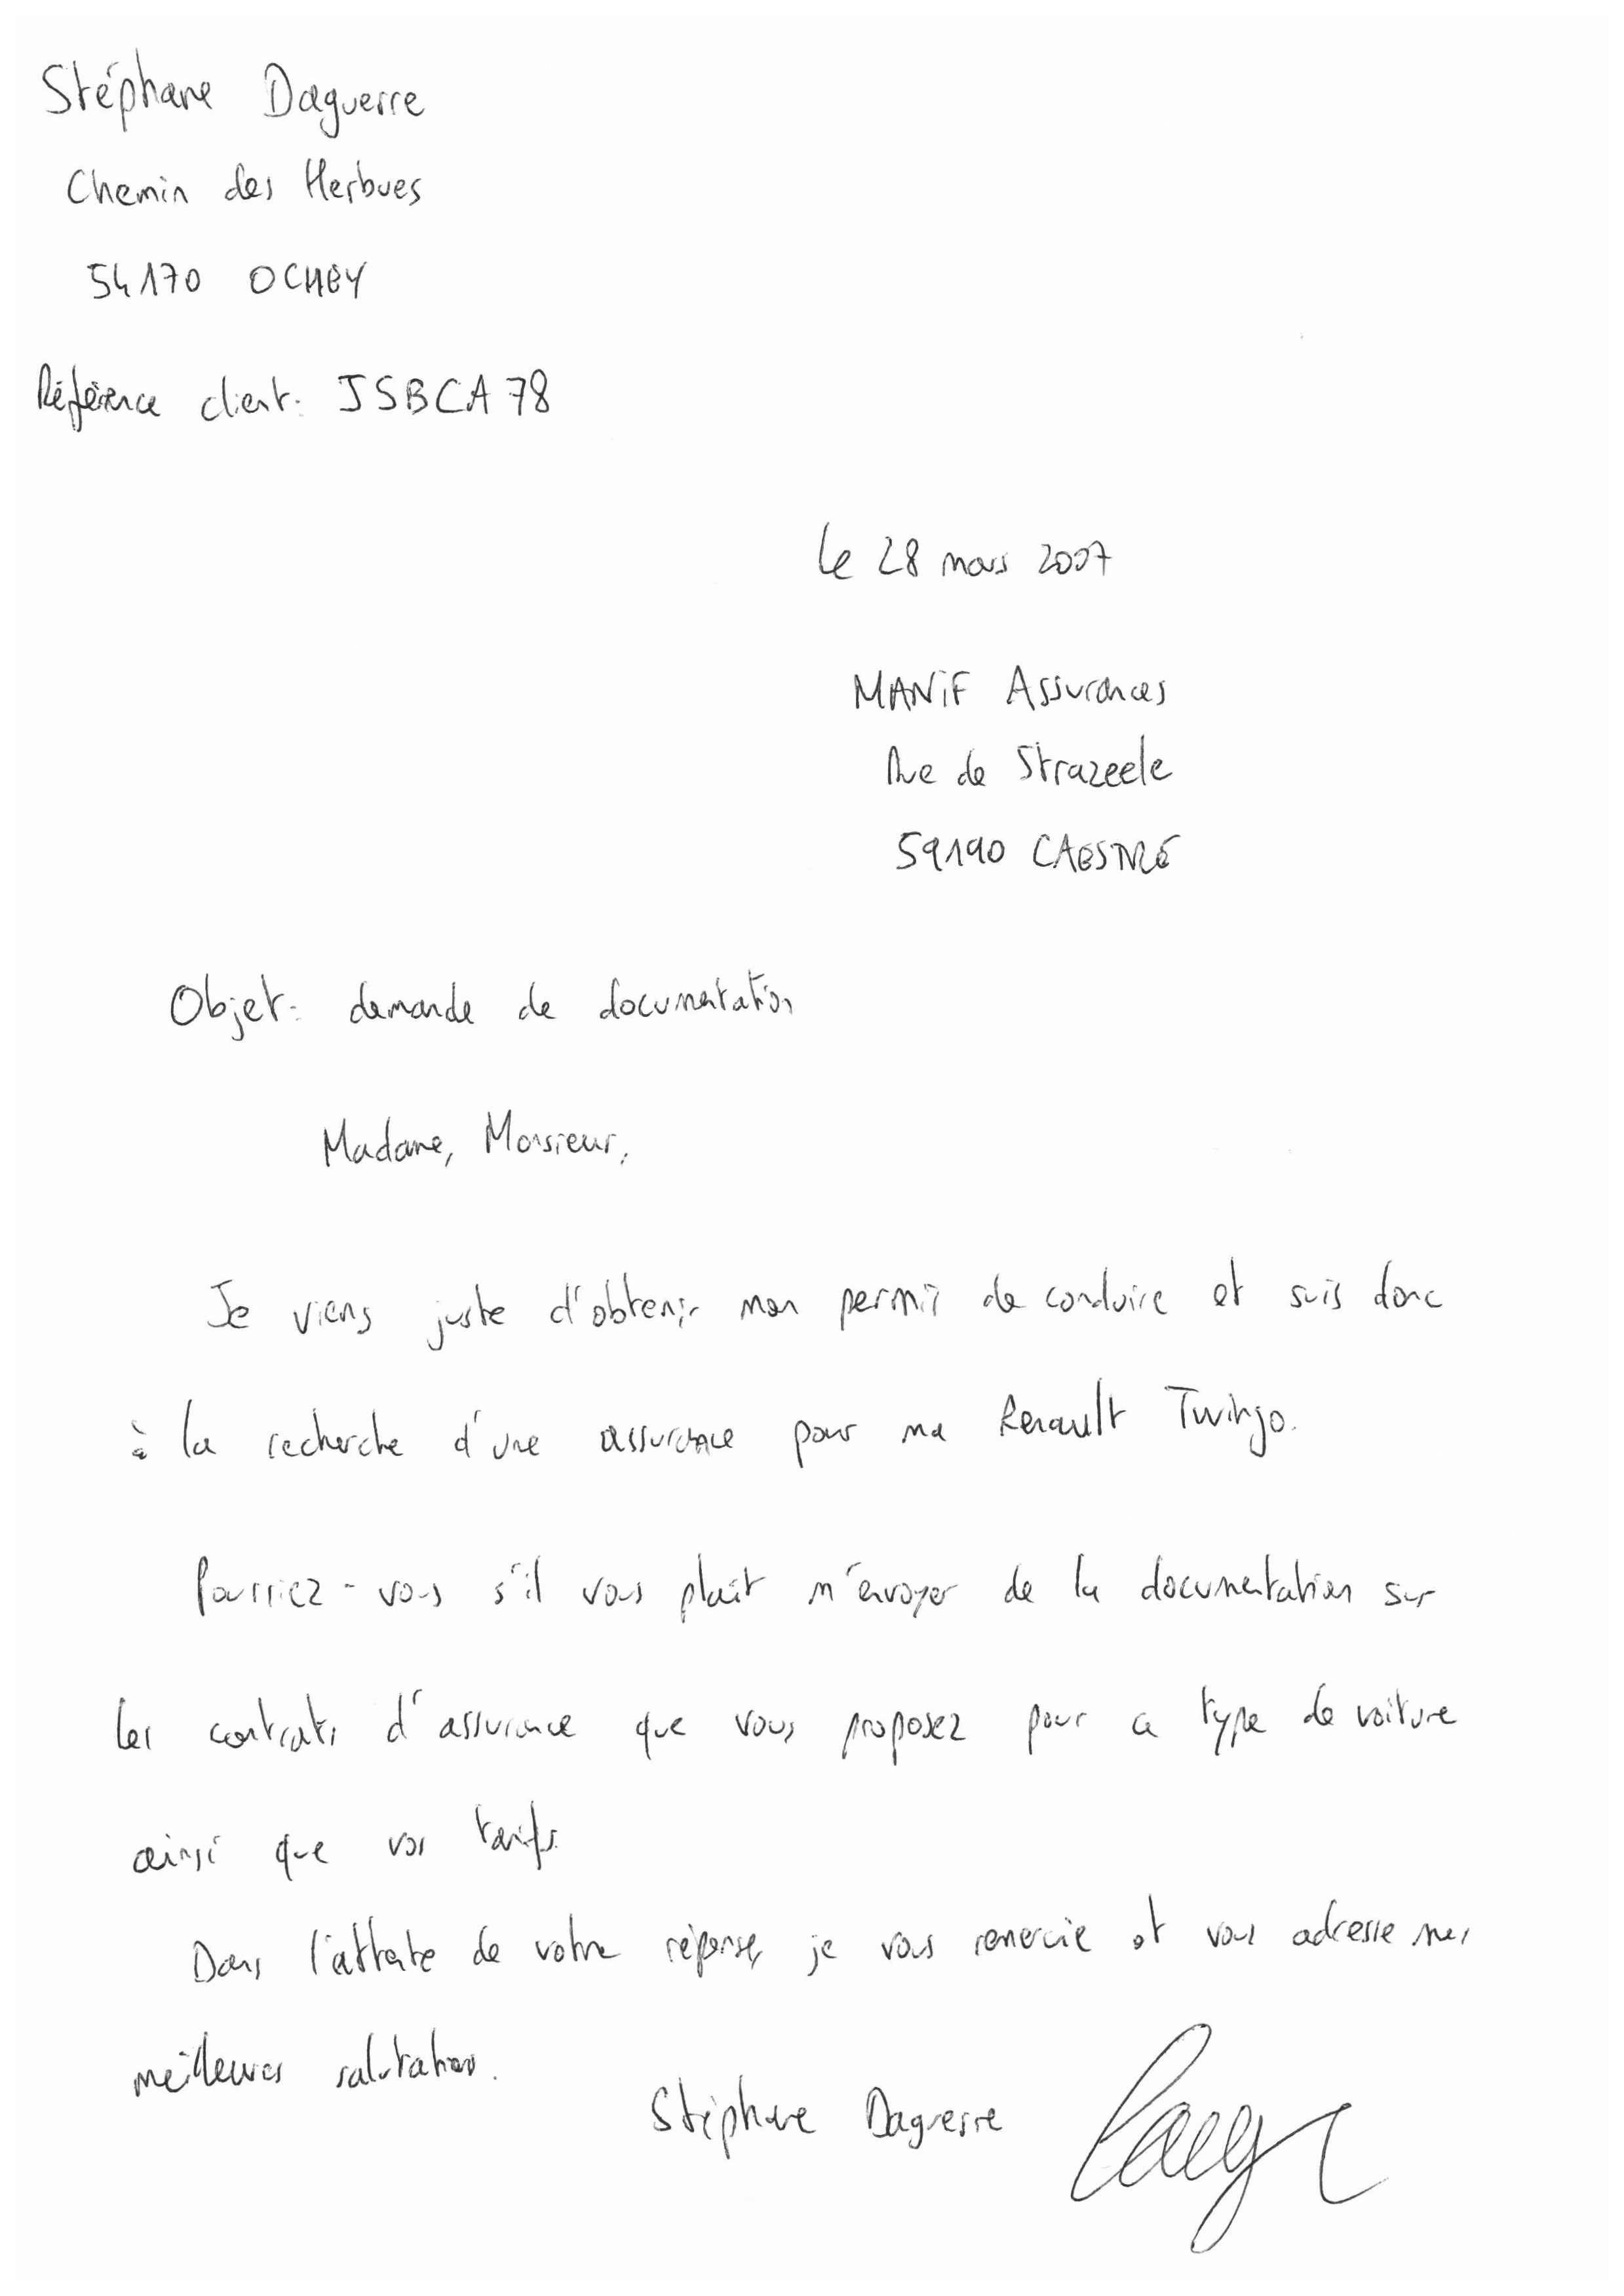 Stéphane Daguerre
Chemin des Herbues
54170 OCHEY
Référence client: JSBCA78
le 28 mars 2007
MANIF Assurances
Rue de Strazeele
59190 CAESTRE
Objet: demande de documentation
Madame, Monsieur,
Je viens juste d'obtenir mon permis de conduire et suis donc
à la recherche d'une assurance pour ma Renault Twingo.
Pourriez-vous s'il vous plait m'envoyer de la documentation sur
les contrats d'assurance que vous proposez pour ce type de voiture
ainsi que vos tarifs.
Dans l'attente de votre réponse, je vous remercie et vous adresse mes
meilleures salutations.
Stéphane Daguerre